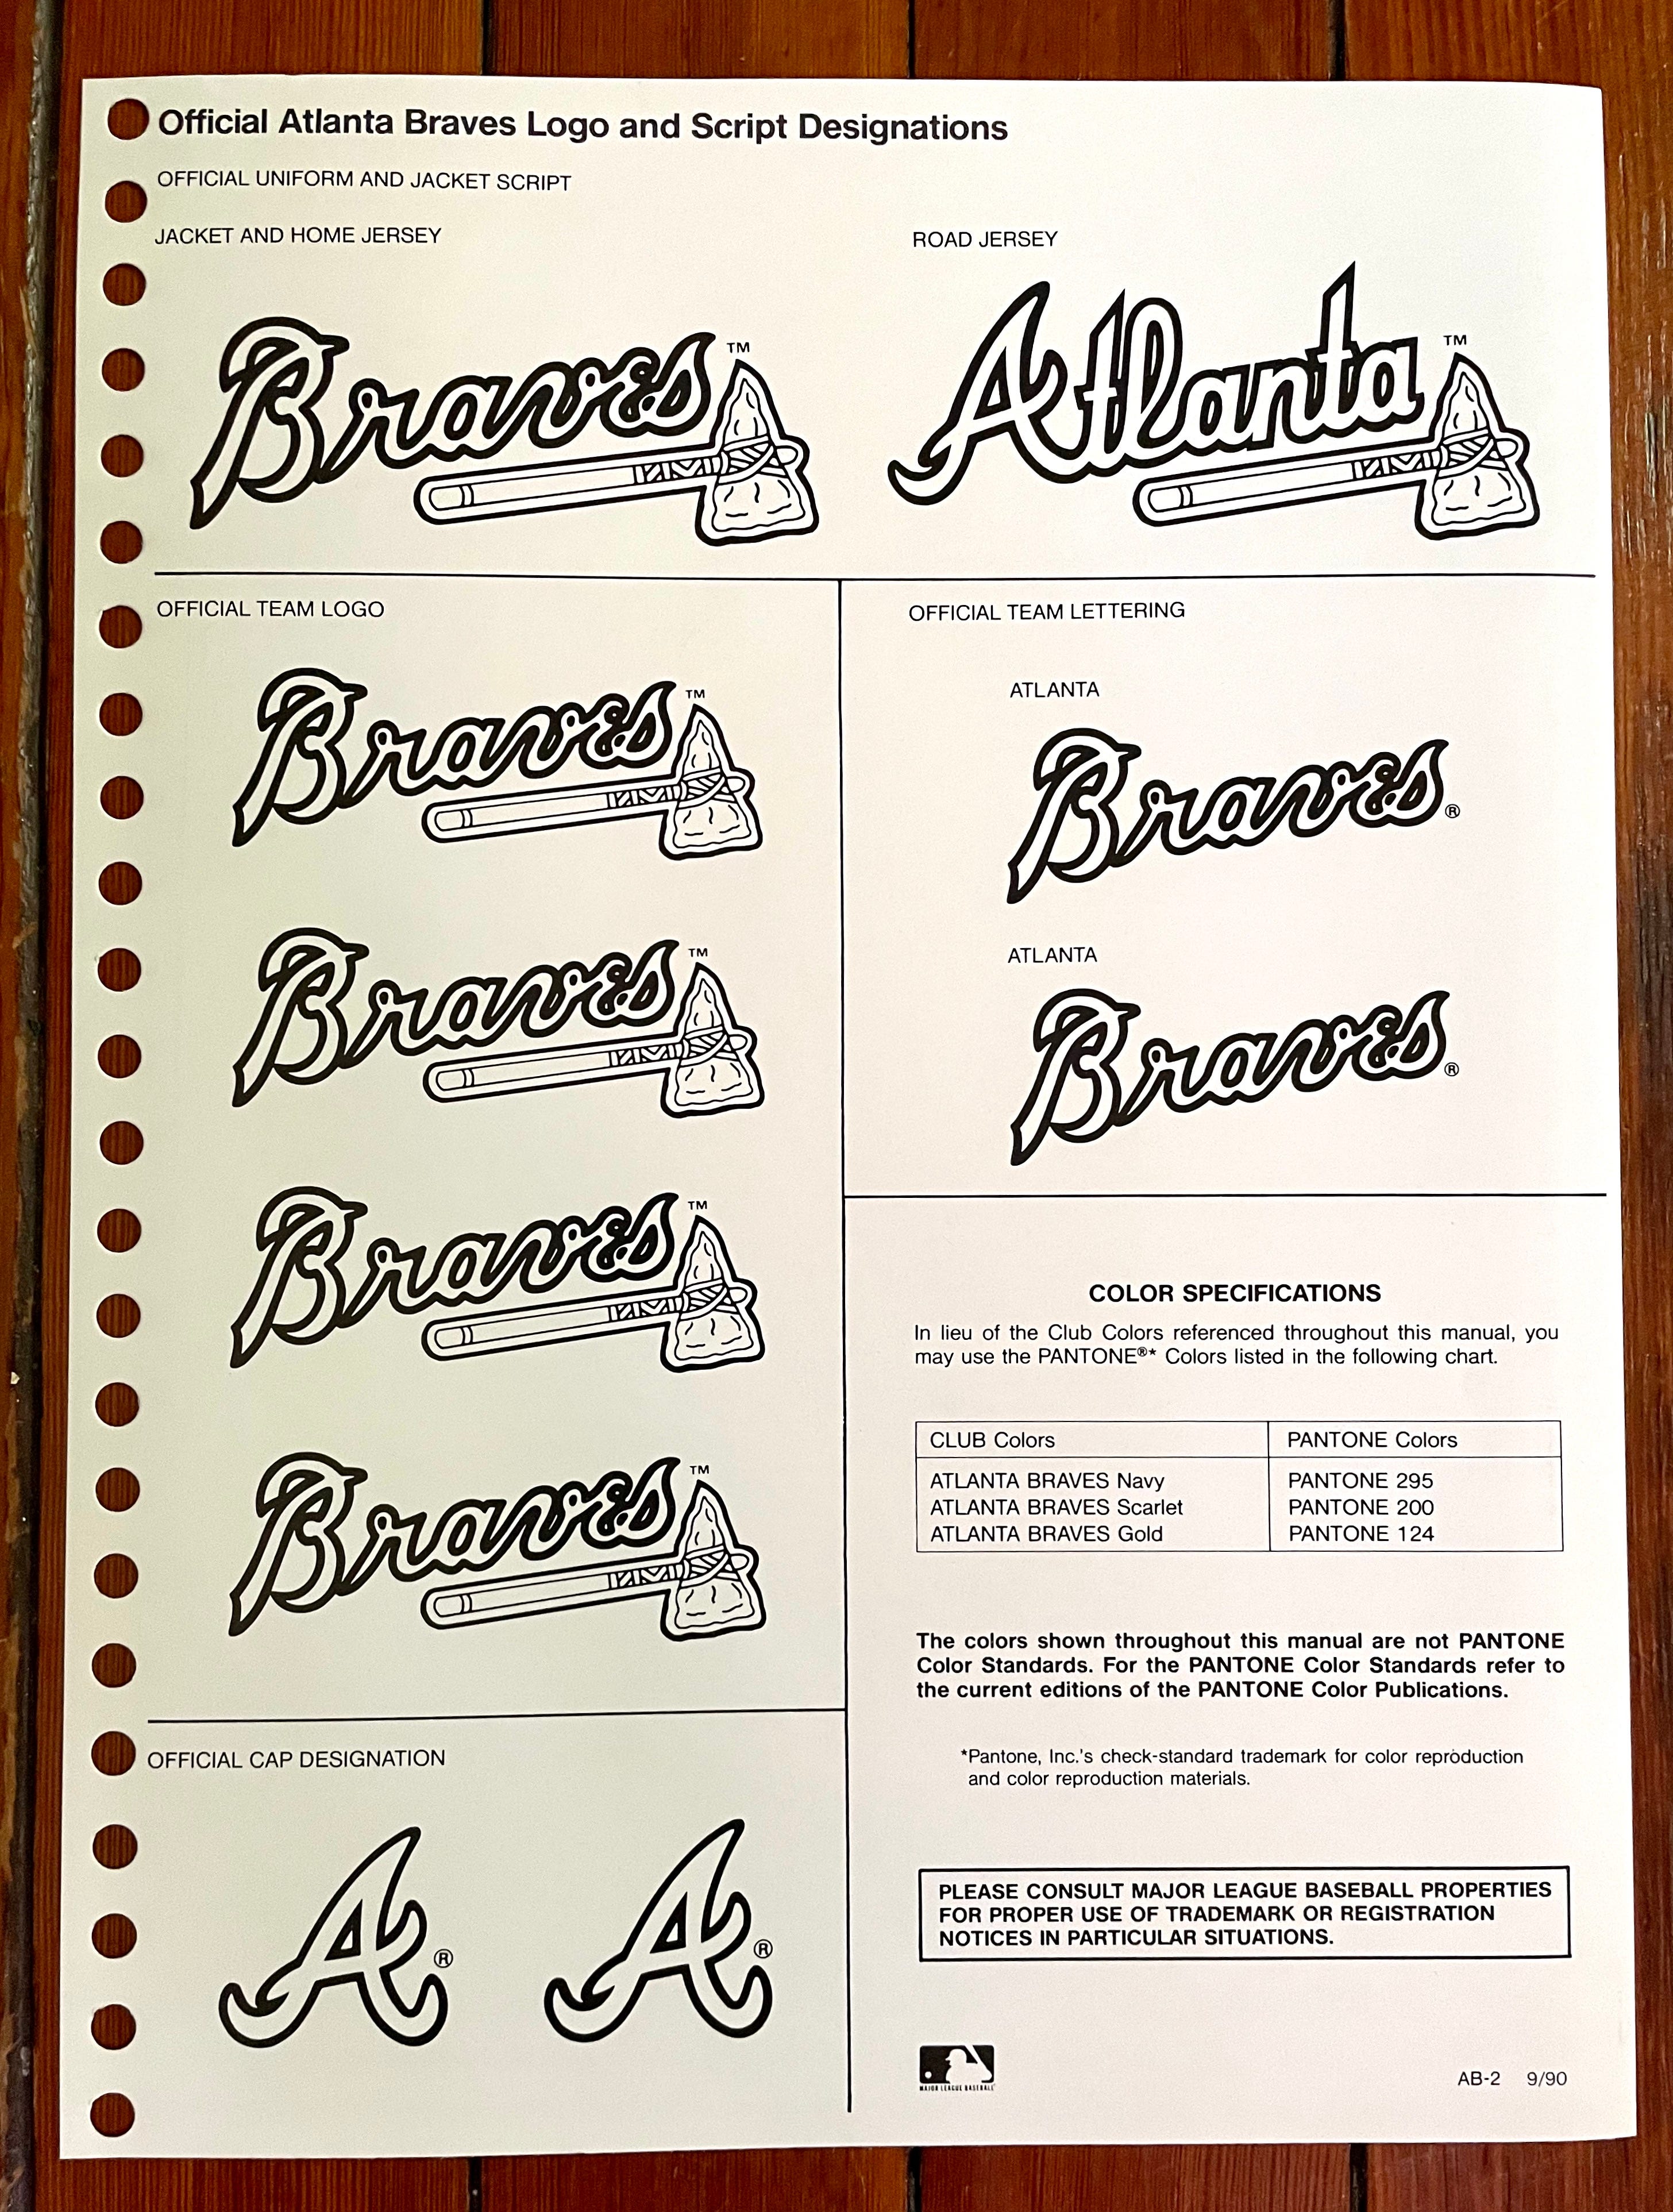 Official Atlanta Braves Logo and Script Designations
OFFICIAL UNIFORM AND JACKET SCRIPT
JACKET AND HOME JERSEY
Braves™
ROAD JERSEY
Atlanta™
OFFICIAL TEAM LOGO
Braves™
Braves™
Braves™
Braves™
OFFICIAL TEAM LETTERING
ATLANTA
Braves®
ATLANTA
Braves®
COLOR SPECIFICATIONS
In lieu of the Club Colors referenced throughout this manual, you
may use the PANTONE®* Colors listed in the following chart.
CLUB Colors PANTONE Colors
ATLANTA BRAVES Navy PANTONE 295
ATLANTA BRAVES Scarlet PANTONE 200
ATLANTA BRAVES Gold PANTONE 124
The colors shown throughout this manual are not PANTONE
Color Standards. For the PANTONE Color Standards refer to
the current editions of the PANTONE Color Publications.
*Pantone, Inc.'s check-standard trademark for color reproduction
and color reproduction materials.
OFFICIAL CAP DESIGNATION
A®
A®
PLEASE CONSULT MAJOR LEAGUE BASEBALL PROPERTIES
FOR PROPER USE OF TRADEMARK OR REGISTRATION
NOTICES IN PARTICULAR SITUATIONS.
MAJOR LEAGUE BASEBALL
AB-2 9/90